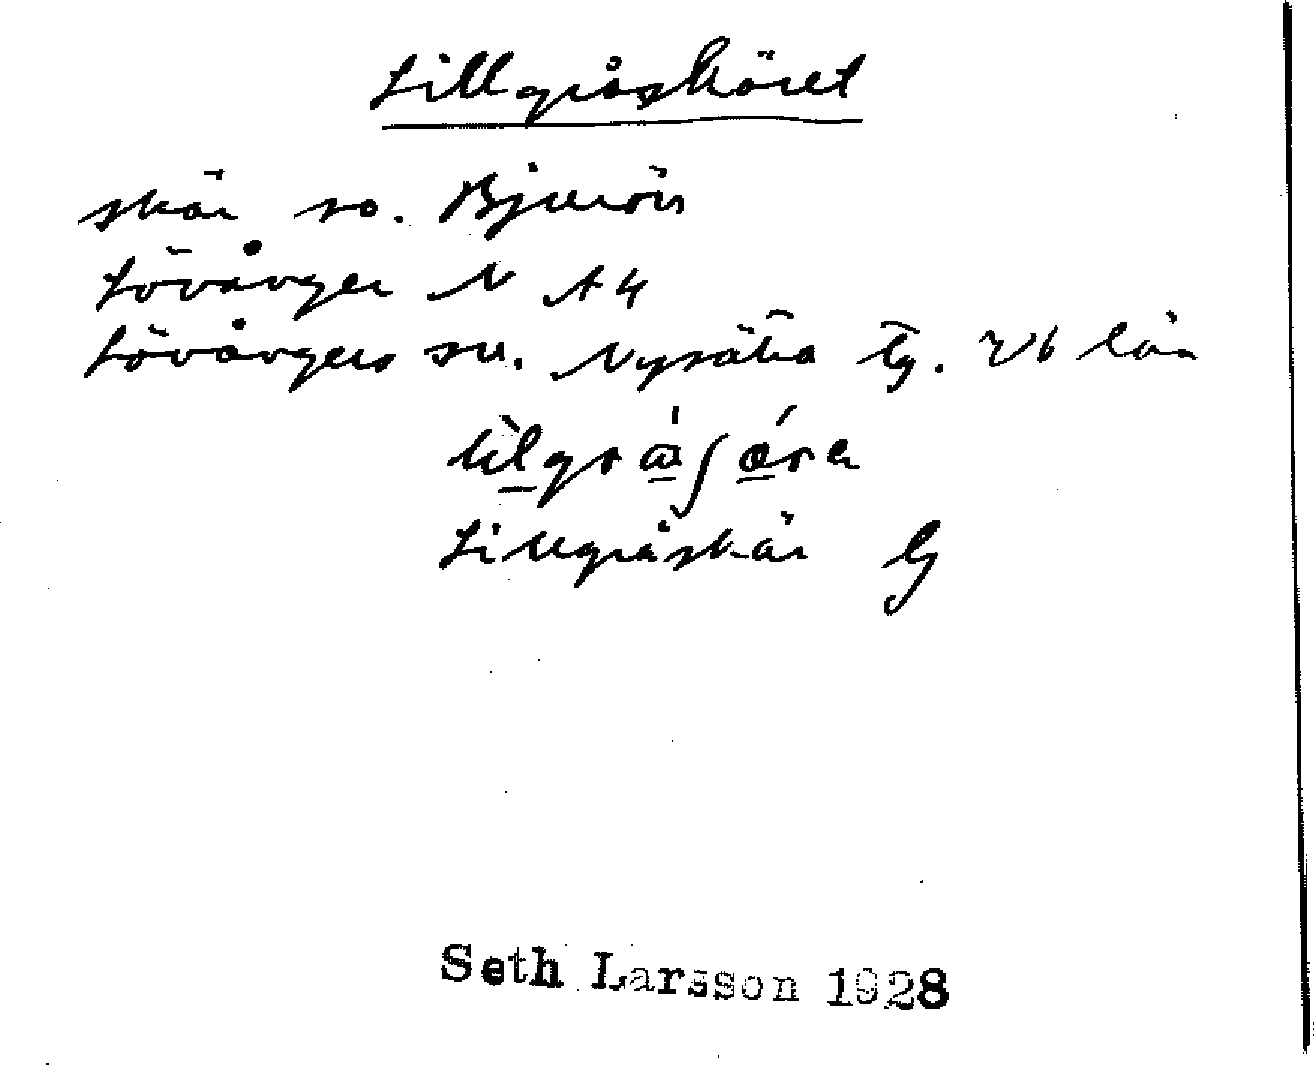 Lillgråskäret
skär so. Bjurön
Lövånger N A4
Lövångers sn. Nysätra tg. Vb län
Lillgråskär G
Seth Larsson 1928